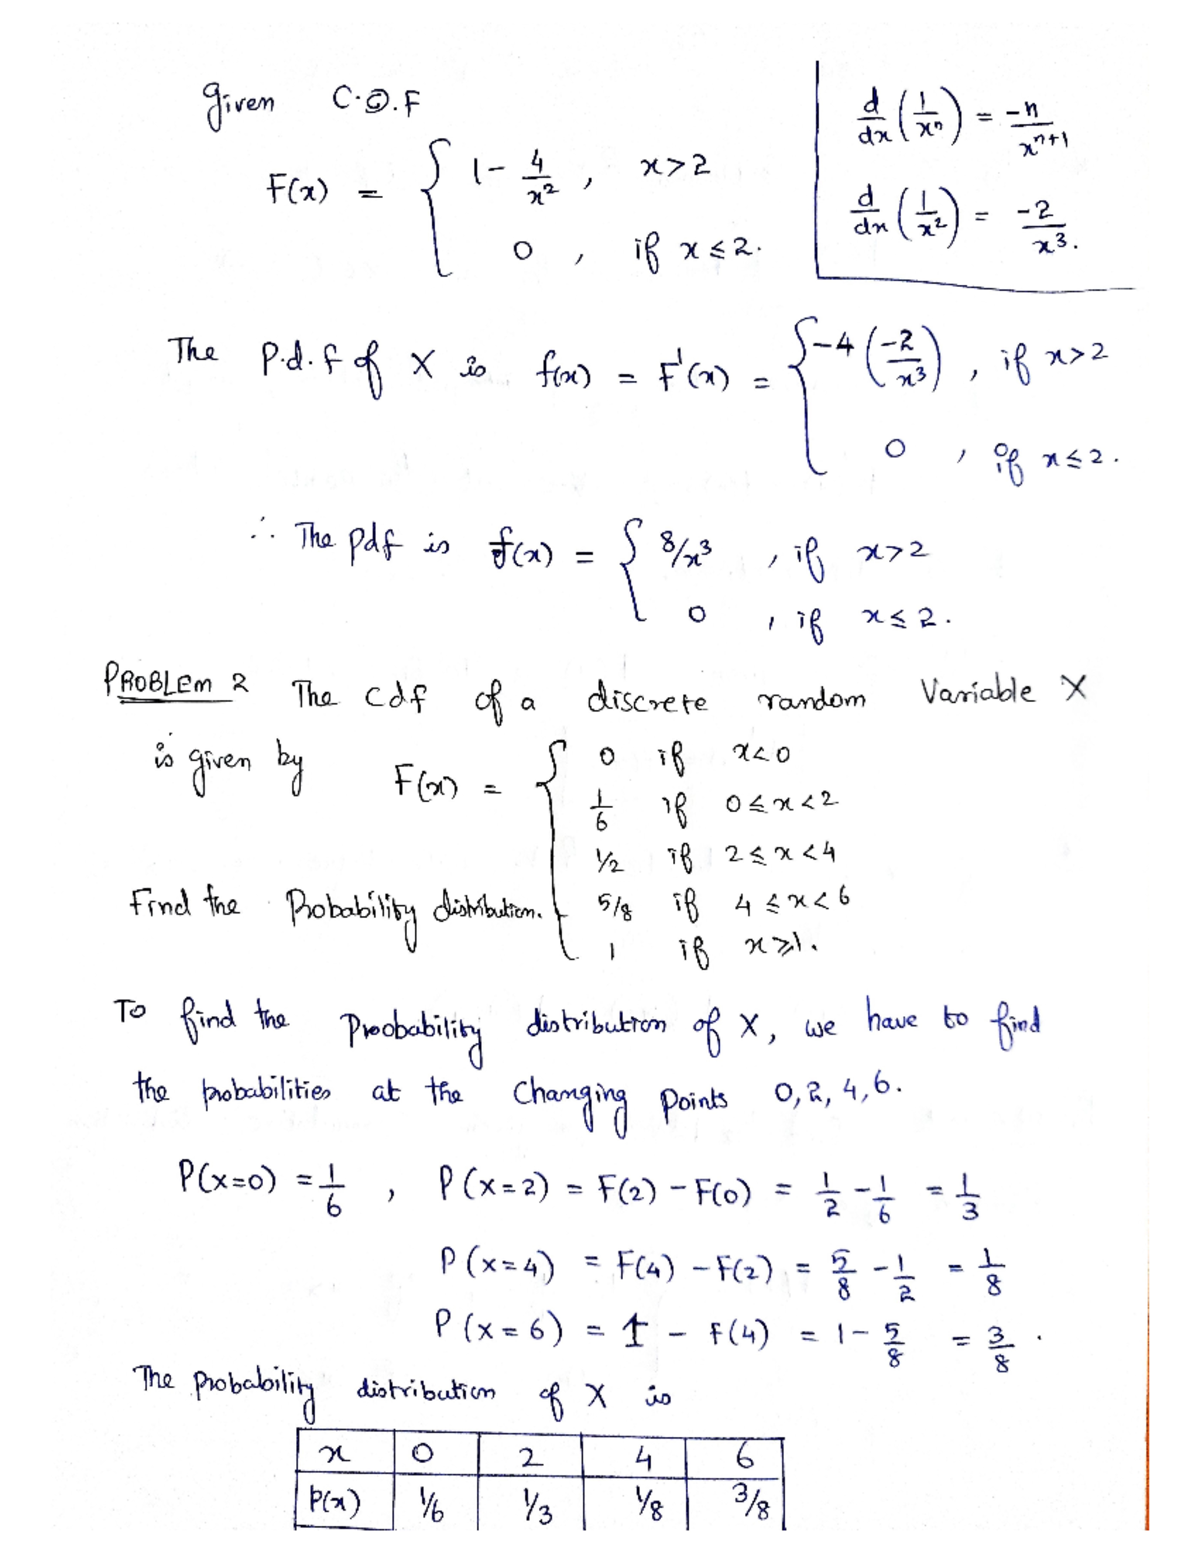 Given C.D.F
F(x) = { 1 - 4/x², x>2
0 , if x ≤ 2.
d/dx (1/xⁿ) = -n/xⁿ⁺¹
d/dx (1/x²) = -2/x³.
The p.d.f of X is f(x) = F'(x) = { -4 (-2/x³) , if x>2
0 , if x ≤ 2.
∴ The pdf is f(x) = { 8/x³ , if x>2
0 , if x ≤ 2.
PROBLEM 2 The cdf of a discrete random Variable X
is given by F(x) = { 0 if x<0
1/6 if 0 ≤ x < 2
1/2 if 2 ≤ x < 4
Find the Probability distribution. 5/8 if 4 ≤ x < 6
1 if x ≥ 1.
To find the Probability distribution of X, we have to find
the probabilities at the Changing Points 0, 2, 4, 6.
P(X=0) = 1/6 , P(X=2) = F(2) - F(0) = 1/2 - 1/6 = 1/3
P(X=4) = F(4) - F(2) = 5/8 - 1/2 = 1/8
P(X=6) = 1 - F(4) = 1 - 5/8 = 3/8 .
The probability distribution of X is
x 0 2 4 6
P(x) 1/6 1/3 1/8 3/8